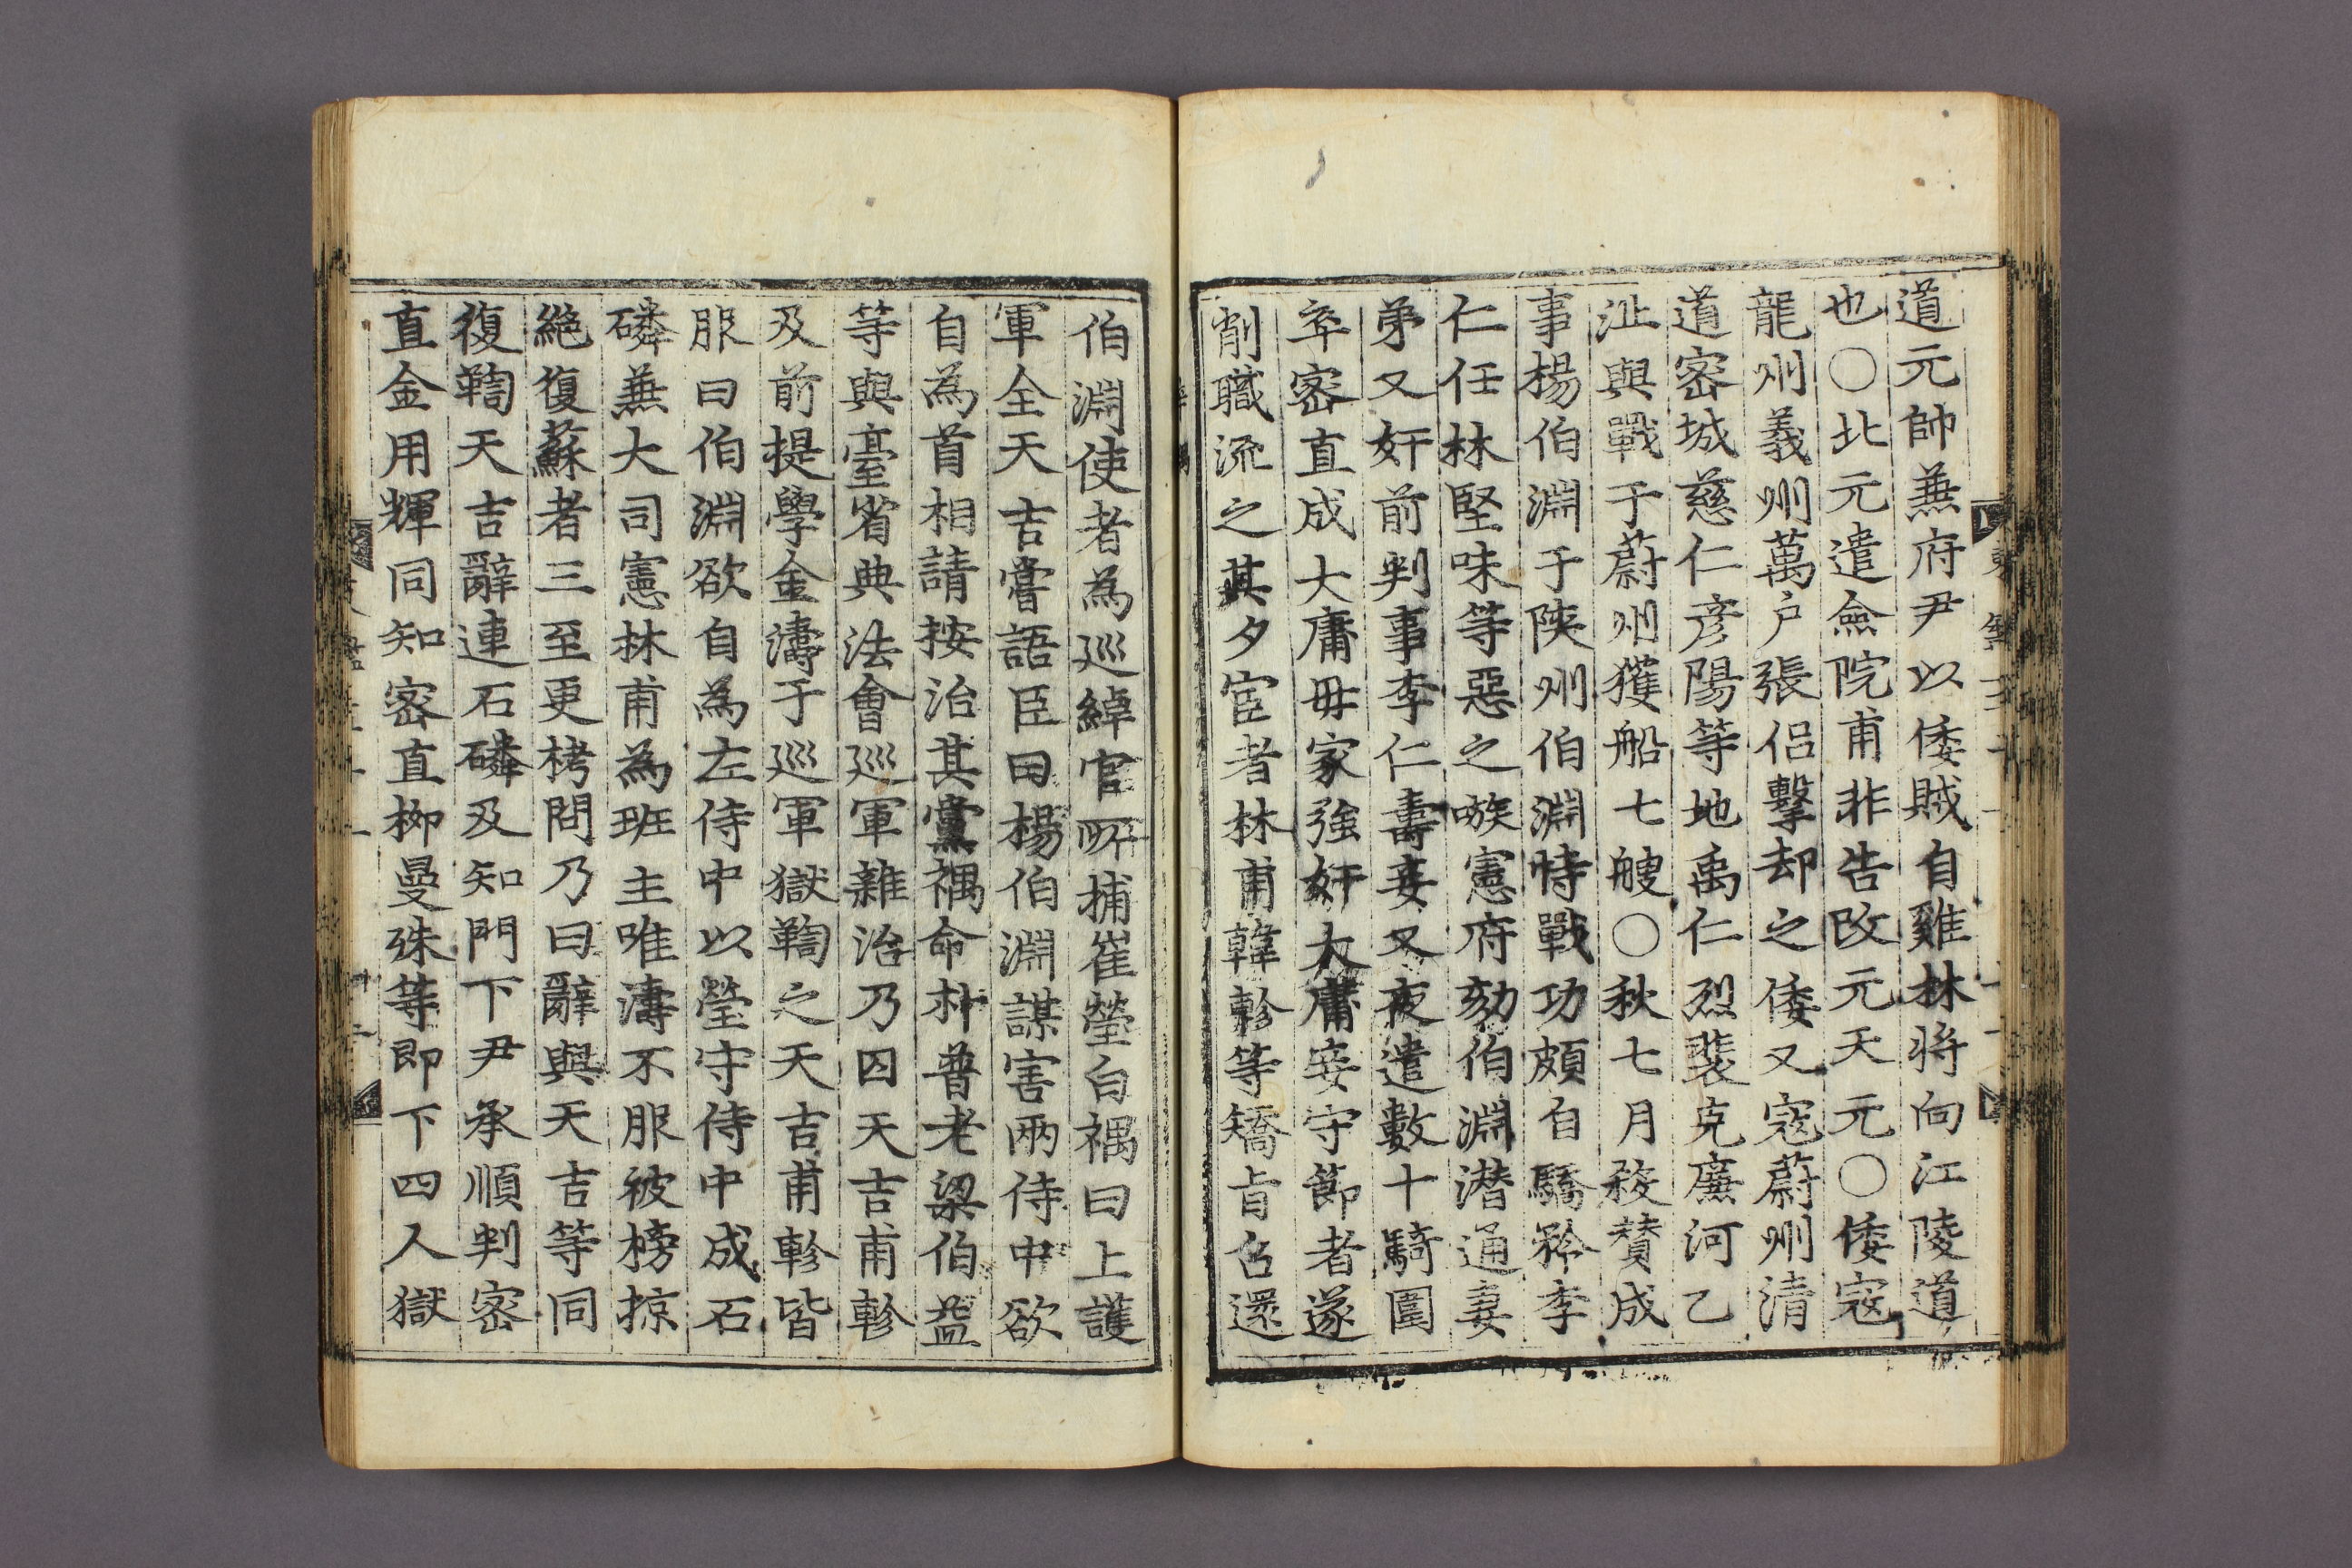 道元帥兼府尹以倭賊自雞林将向江陵道
也○北元遣僉院甫非告改元天元○倭寇
龍州義州萬戶張侶擊却之倭又寇蔚州清
道密城慈仁彦陽等地禹仁烈裴克廉河乙
沚與戰于蔚州獲船七艘○秋七月移贊成
事楊伯淵于陜州伯淵恃戰功頗自驕矜李
仁任林堅味等惡之嗾憲府劾伯淵潜通妻
弟又奸前判事李仁壽妾又夜遣數十騎圍
卒密直成大庸毋家強奸大庸妾守節者遂
削職流之其夕宦者林甫韓軫等矯旨召還
伯淵使者為巡綽官所捕崔瑩白禑曰上護
軍全天吉嘗語臣曰楊伯淵謀害兩侍中欲
自為首相請按治其黨禑命朴普老梁伯益
等與臺省典法會巡軍雜治乃囚天吉甫軫
及前提學金濤于巡軍獄鞫之天吉甫軫皆
服曰伯淵欲自為左侍中以瑩守侍中成石
磷兼大司憲林甫為班主唯濤不服被榜掠
絶復蘇者三至更栲問乃曰辭與天吉等同
復鞫天吉辭連石磷及知門下尹承順判密
直金用輝同知密直柳曼殊等即下四人獄